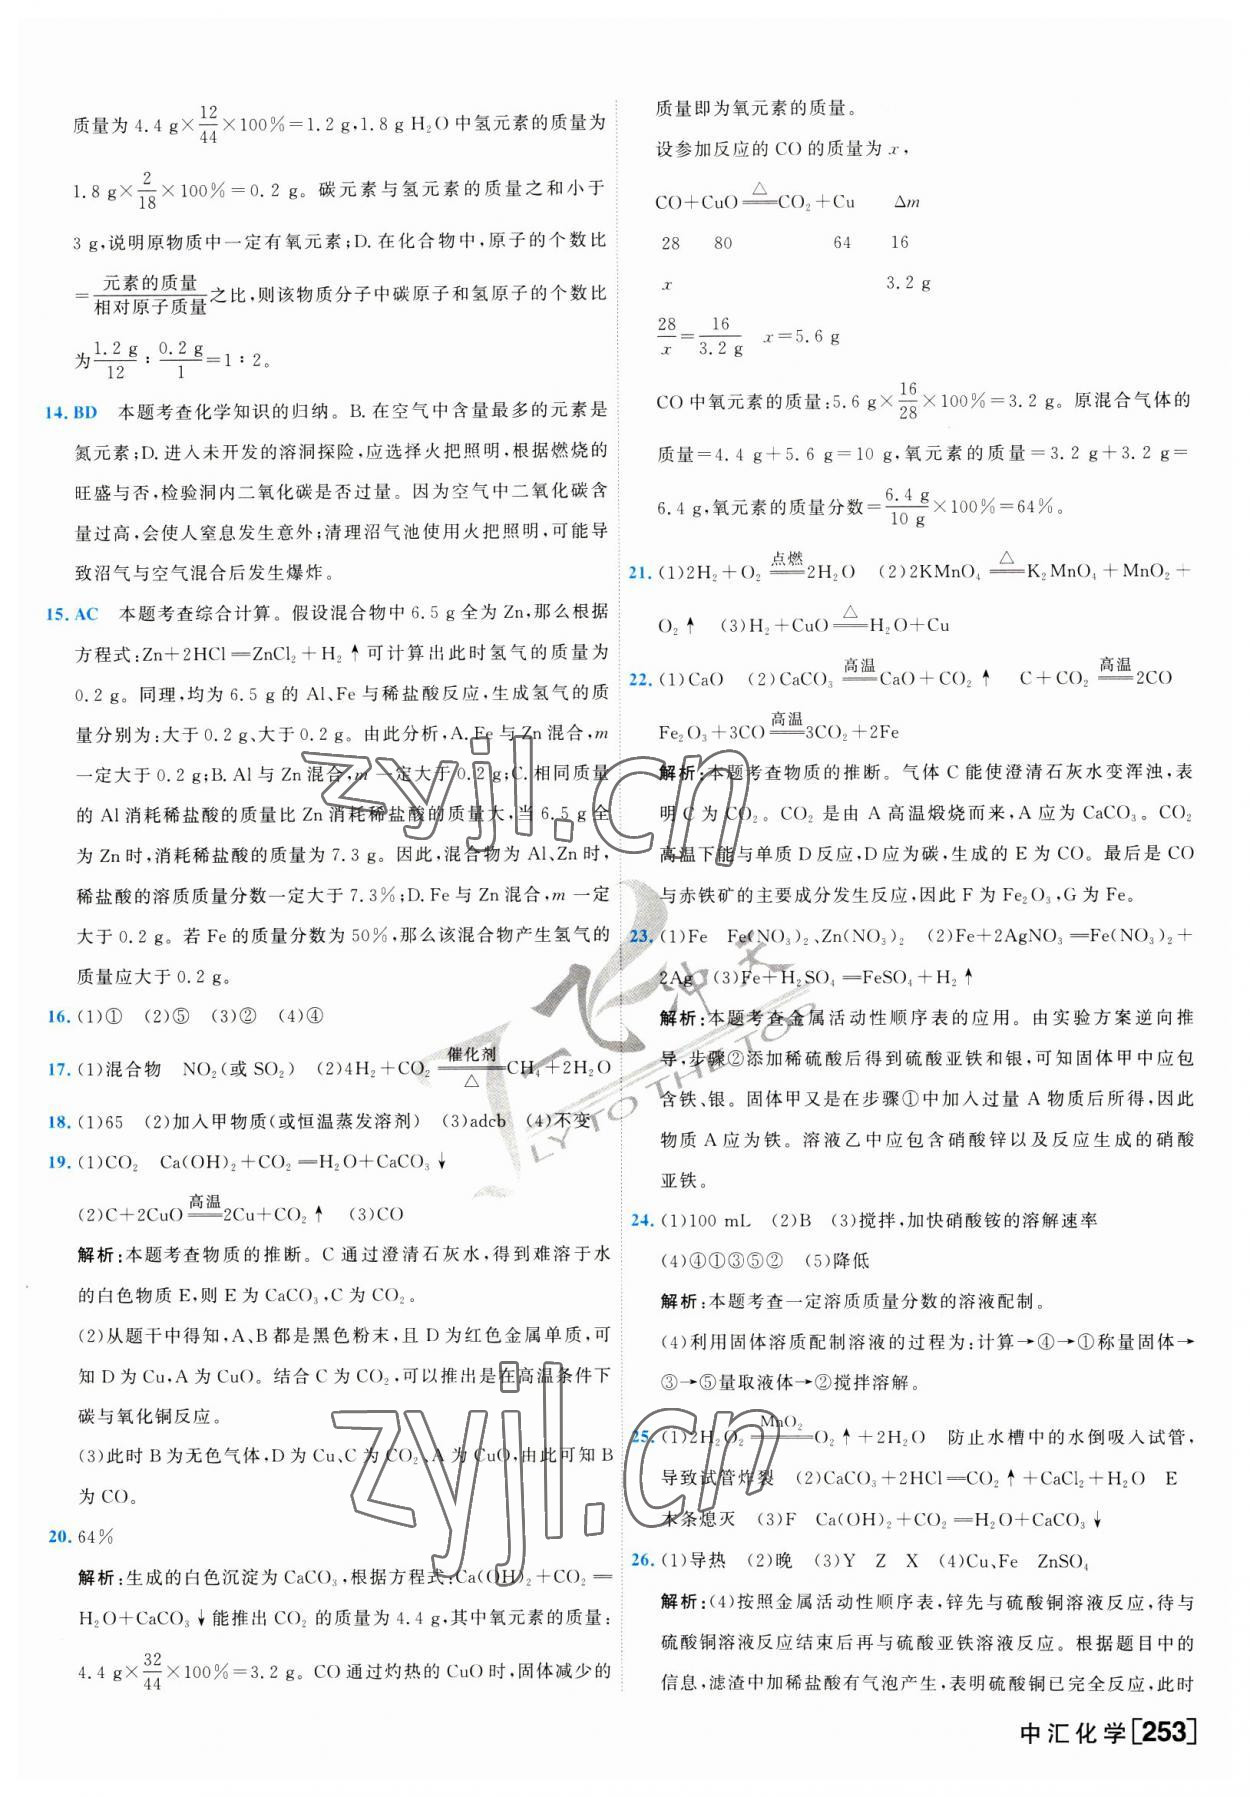 质量为 4.4 g×12/44×100%=1.2 g,1.8 g H₂O 中氢元素的质量为
1.8 g×2/18×100%=0.2 g。碳元素与氢元素的质量之和小于
3 g,说明原物质中一定有氧元素;D.在化合物中,原子的个数比
=元素的质量/相对原子质量之比,则该物质分子中碳原子和氢原子的个数比
为1.2 g/12∶0.2 g/1=1∶2。
14. BD 本题考查化学知识的归纳。B.在空气中含量最多的元素是
氮元素;D.进入未开发的溶洞探险,应选择火把照明,根据燃烧的
旺盛与否,检验洞内二氧化碳是否过量。因为空气中二氧化碳含
量过高,会使人窒息发生意外;清理沼气池使用火把照明,可能导
致沼气与空气混合后发生爆炸。
15. AC 本题考查综合计算。假设混合物中 6.5 g 全为 Zn,那么根据
方程式:Zn+2HCl═ZnCl₂+H₂↑可计算出此时氢气的质量为
0.2 g。同理,均为 6.5 g 的 Al、Fe 与稀盐酸反应,生成氢气的质
量分别为:大于 0.2 g、大于 0.2 g。由此分析,A.Fe 与 Zn 混合,m
一定大于 0.2 g;B.Al 与 Zn 混合,m 一定大于 0.2 g;C.相同质量
的 Al 消耗稀盐酸的质量比 Zn 消耗稀盐酸的质量大,当 6.5 g 全
为 Zn 时,消耗稀盐酸的质量为 7.3 g。因此,混合物为 Al、Zn 时,
稀盐酸的溶质质量分数一定大于 7.3%;D.Fe 与 Zn 混合,m 一定
大于 0.2 g。若 Fe 的质量分数为 50%,那么该混合物产生氢气的
质量应大于 0.2 g。
16. (1)① (2)⑤ (3)② (4)④
17. (1)混合物 NO₂(或 SO₂) (2)4H₂+CO₂ 催化剂═△ CH₄+2H₂O
18. (1)65 (2)加入甲物质(或恒温蒸发溶剂) (3)adcb (4)不变
19. (1)CO₂ Ca(OH)₂+CO₂═H₂O+CaCO₃↓
(2)C+2CuO 高温═ 2Cu+CO₂↑ (3)CO
解析:本题考查物质的推断。C 通过澄清石灰水,得到难溶于水
的白色物质 E,则 E 为 CaCO₃,C 为 CO₂。
(2)从题干中得知,A、B 都是黑色粉末,且 D 为红色金属单质,可
知 D 为 Cu,A 为 CuO。结合 C 为 CO₂,可以推出是在高温条件下
碳与氧化铜反应。
(3)此时 B 为无色气体,D 为 Cu、C 为 CO₂、A 为 CuO,由此可知 B
为 CO。
20. 64%
解析:生成的白色沉淀为 CaCO₃,根据方程式:Ca(OH)₂+CO₂═
H₂O+CaCO₃↓能推出 CO₂ 的质量为 4.4 g,其中氧元素的质量:
4.4 g×32/44×100%=3.2 g。CO 通过灼热的 CuO 时,固体减少的
质量即为氧元素的质量。
设参加反应的 CO 的质量为 x,
CO+CuO △═ CO₂+Cu Δm
28 80 64 16
x 3.2 g
28/x=16/3.2 g x=5.6 g
CO 中氧元素的质量:5.6 g×16/28×100%=3.2 g。原混合气体的
质量=4.4 g+5.6 g=10 g,氧元素的质量=3.2 g+3.2 g=
6.4 g,氧元素的质量分数=6.4 g/10 g×100%=64%。
21. (1)2H₂+O₂ 点燃═ 2H₂O (2)2KMnO₄ △═ K₂MnO₄+MnO₂+
O₂↑ (3)H₂+CuO △═ H₂O+Cu
22. (1)CaO (2)CaCO₃ 高温═ CaO+CO₂↑ C+CO₂ 高温═ 2CO
Fe₂O₃+3CO 高温═ 3CO₂+2Fe
解析:本题考查物质的推断。气体 C 能使澄清石灰水变浑浊,表
明 C 为 CO₂。CO₂ 是由 A 高温煅烧而来,A 应为 CaCO₃。CO₂
高温下能与单质 D 反应,D 应为碳,生成的 E 为 CO。最后是 CO
与赤铁矿的主要成分发生反应,因此 F 为 Fe₂O₃,G 为 Fe。
23. (1)Fe Fe(NO₃)₂、Zn(NO₃)₂ (2)Fe+2AgNO₃═Fe(NO₃)₂+
2Ag (3)Fe+H₂SO₄═FeSO₄+H₂↑
解析:本题考查金属活动性顺序表的应用。由实验方案逆向推
导,步骤②添加稀硫酸后得到硫酸亚铁和银,可知固体甲中应包
含铁、银。固体甲又是在步骤①中加入过量 A 物质后所得,因此
物质 A 应为铁。溶液乙中应包含硝酸锌以及反应生成的硝酸
亚铁。
24. (1)100 mL (2)B (3)搅拌,加快硝酸铵的溶解速率
(4)④①③⑤② (5)降低
解析:本题考查一定溶质质量分数的溶液配制。
(4)利用固体溶质配制溶液的过程为:计算→④→①称量固体→
③→⑤量取液体→②搅拌溶解。
25. (1)2H₂O₂ MnO₂═ O₂↑+2H₂O 防止水槽中的水倒吸入试管,
导致试管炸裂 (2)CaCO₃+2HCl═CO₂↑+CaCl₂+H₂O E
木条熄灭 (3)F Ca(OH)₂+CO₂═H₂O+CaCO₃↓
26. (1)导热 (2)晚 (3)Y Z X (4)Cu、Fe ZnSO₄
解析:(4)按照金属活动性顺序表,锌先与硫酸铜溶液反应,待与
硫酸铜溶液反应结束后再与硫酸亚铁溶液反应。根据题目中的
信息,滤渣中加稀盐酸有气泡产生,表明硫酸铜已完全反应,此时
中汇化学[253]
zyjl.cn
zyjl.cn
一飞冲天
FLY TO THE TOP